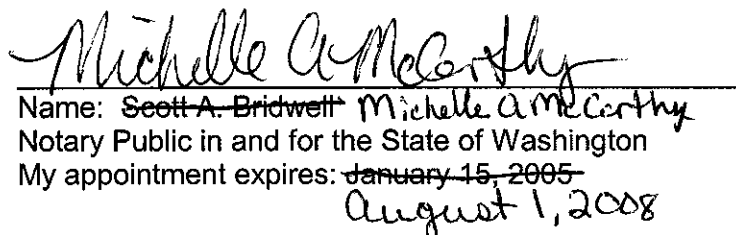 Michelle A McCarthy
Name: Scott A. Bridwell Michelle A McCarthy
Notary Public in and for the State of Washington
My appointment expires: January 15, 2005
August 1, 2008